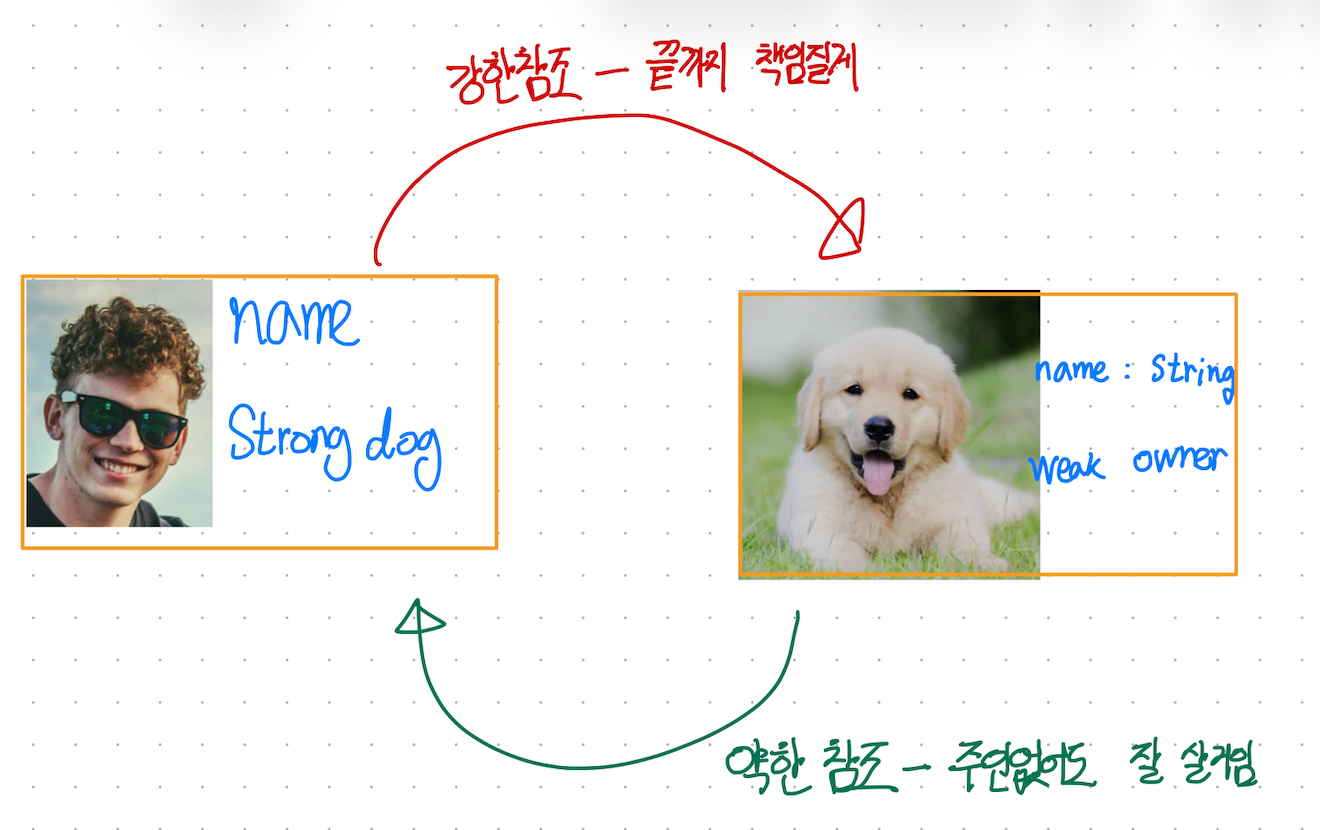 강한참조 - 끝까지 책임질게
name
Strong dog
name : String
weak owner
약한 참조 - 주인없어도 잘 살거임